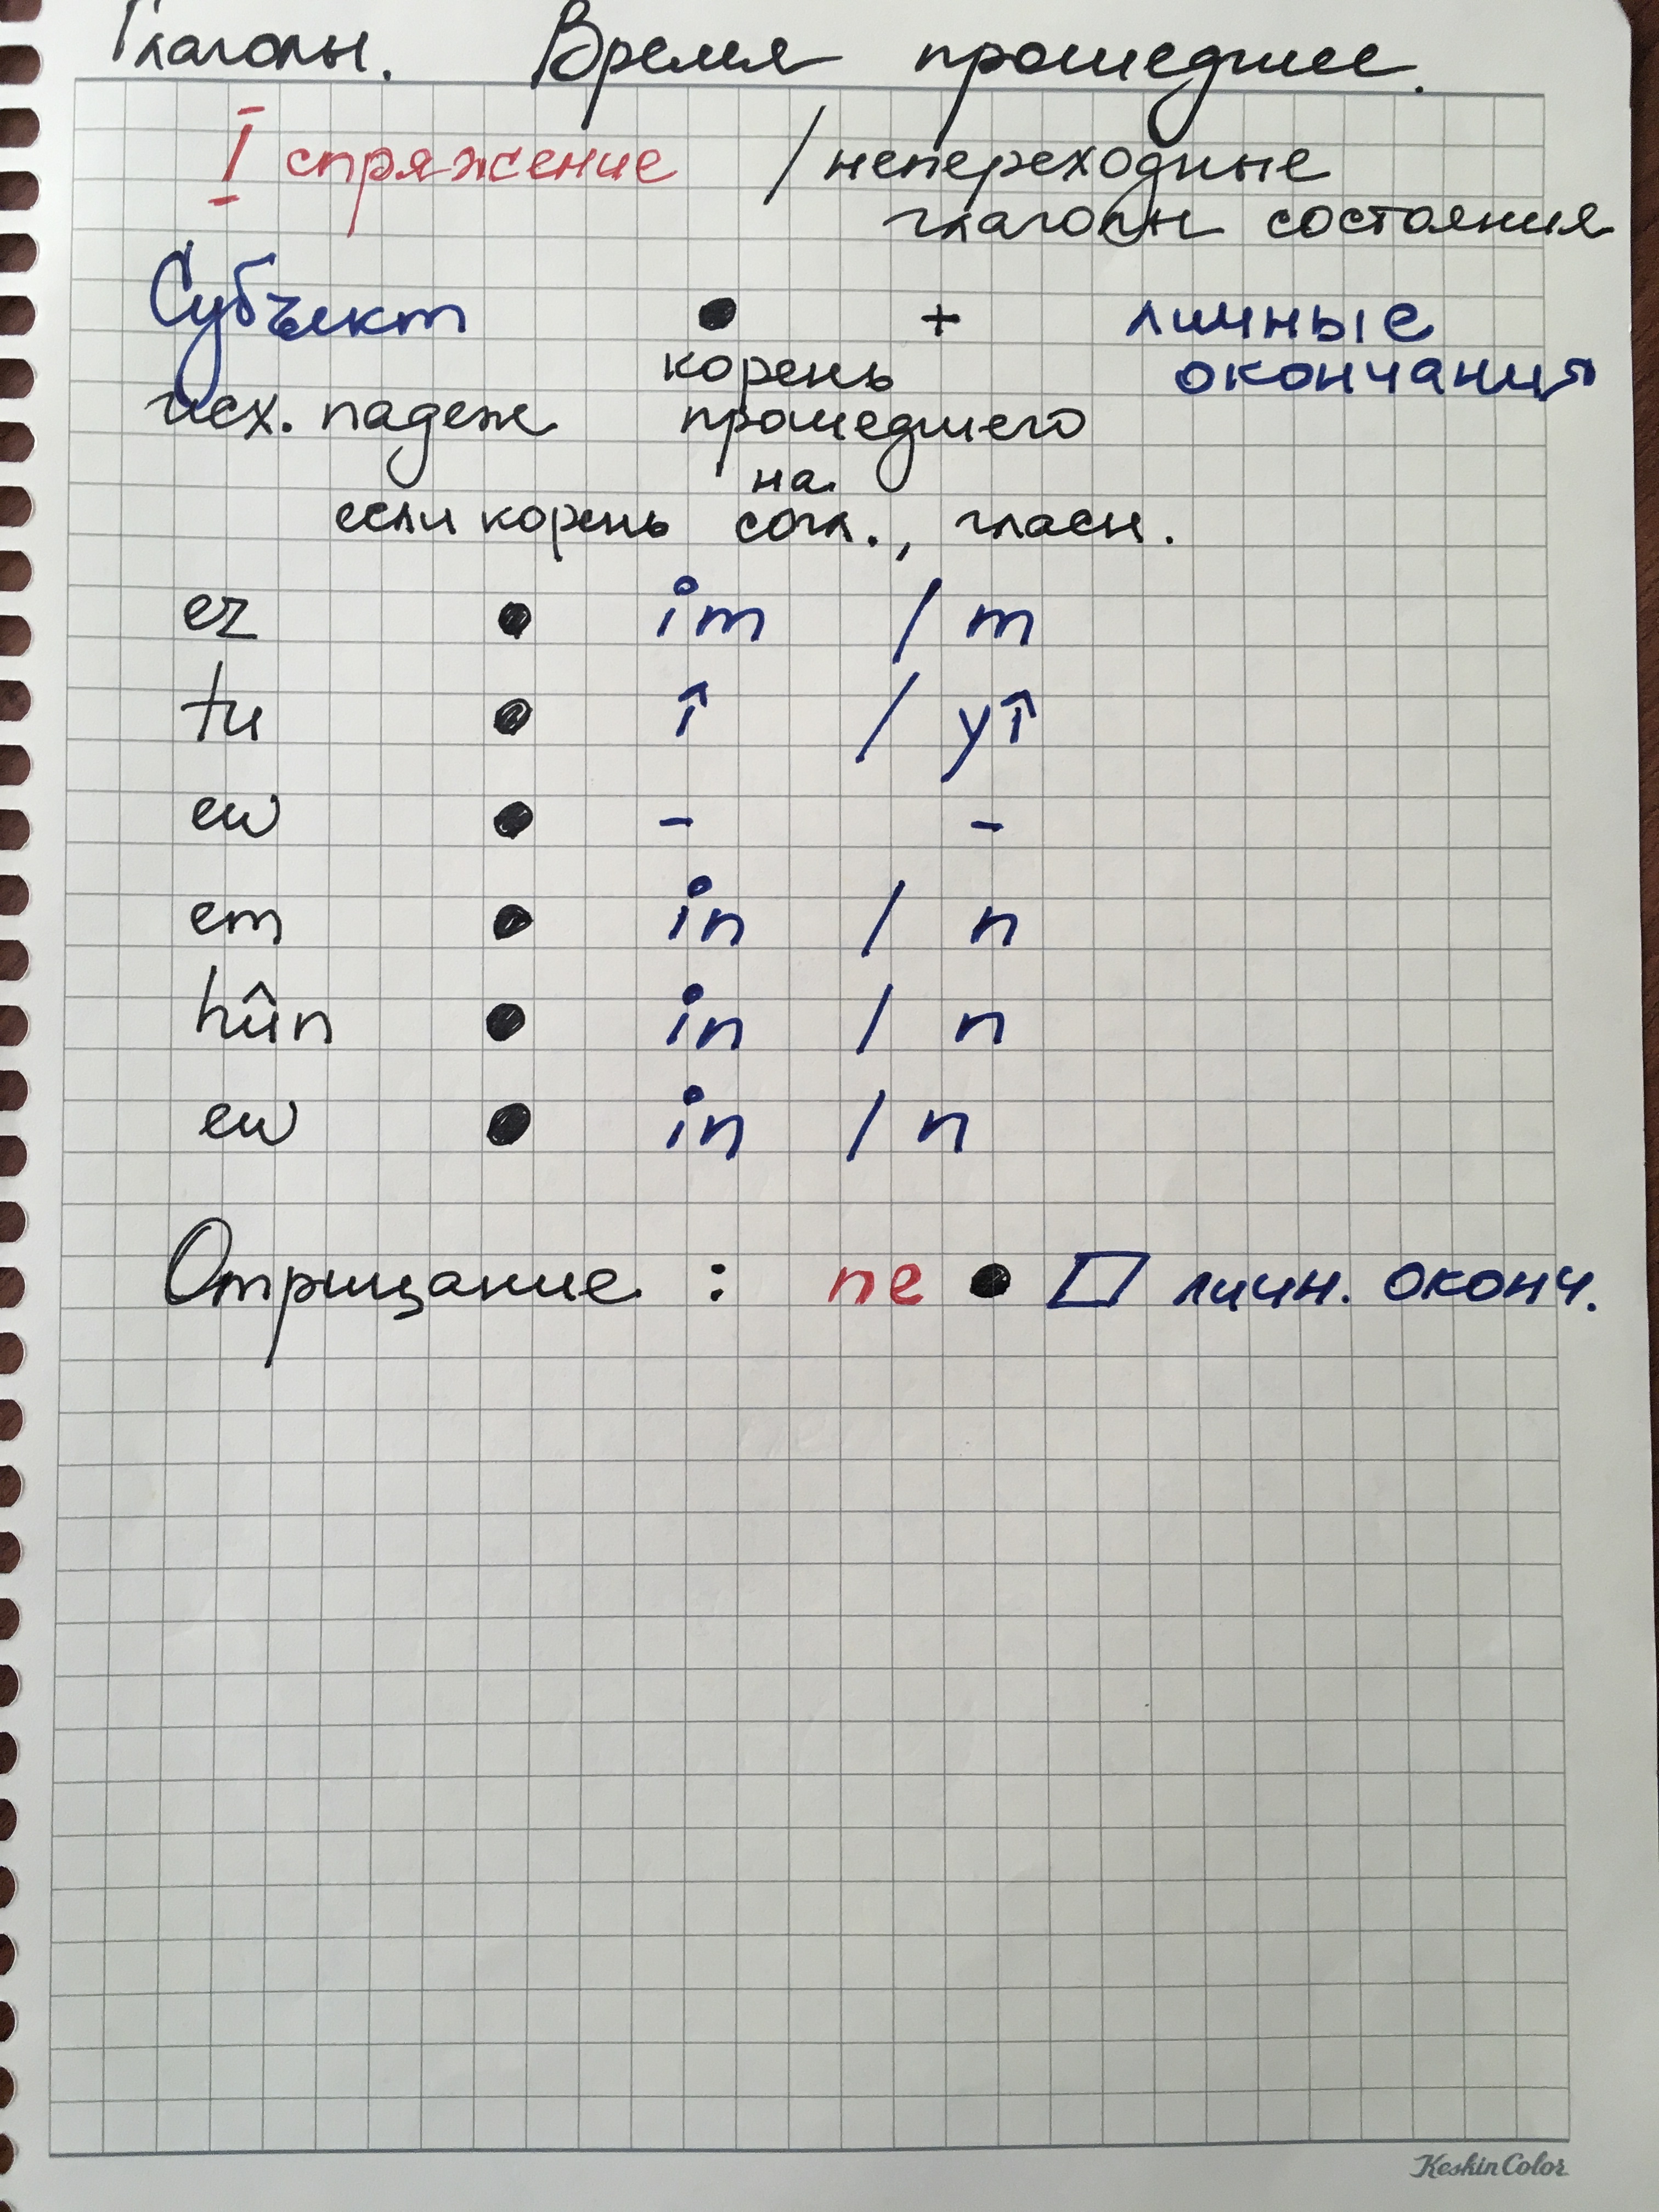 Глаголы. Время прошедшее.
I спряжение / непереходные
глаголы состояния
Субъект ● + личные
окончания
корень
исх. падеж прошедшего
на
если корень согл., гласн.
ez ● im / m
tu ● î / yî
ew ● - -
em ● in / n
hûn ● in / n
ew ● in / n
Отрицание : ne ● ▱ личн. оконч.
Keskin Color